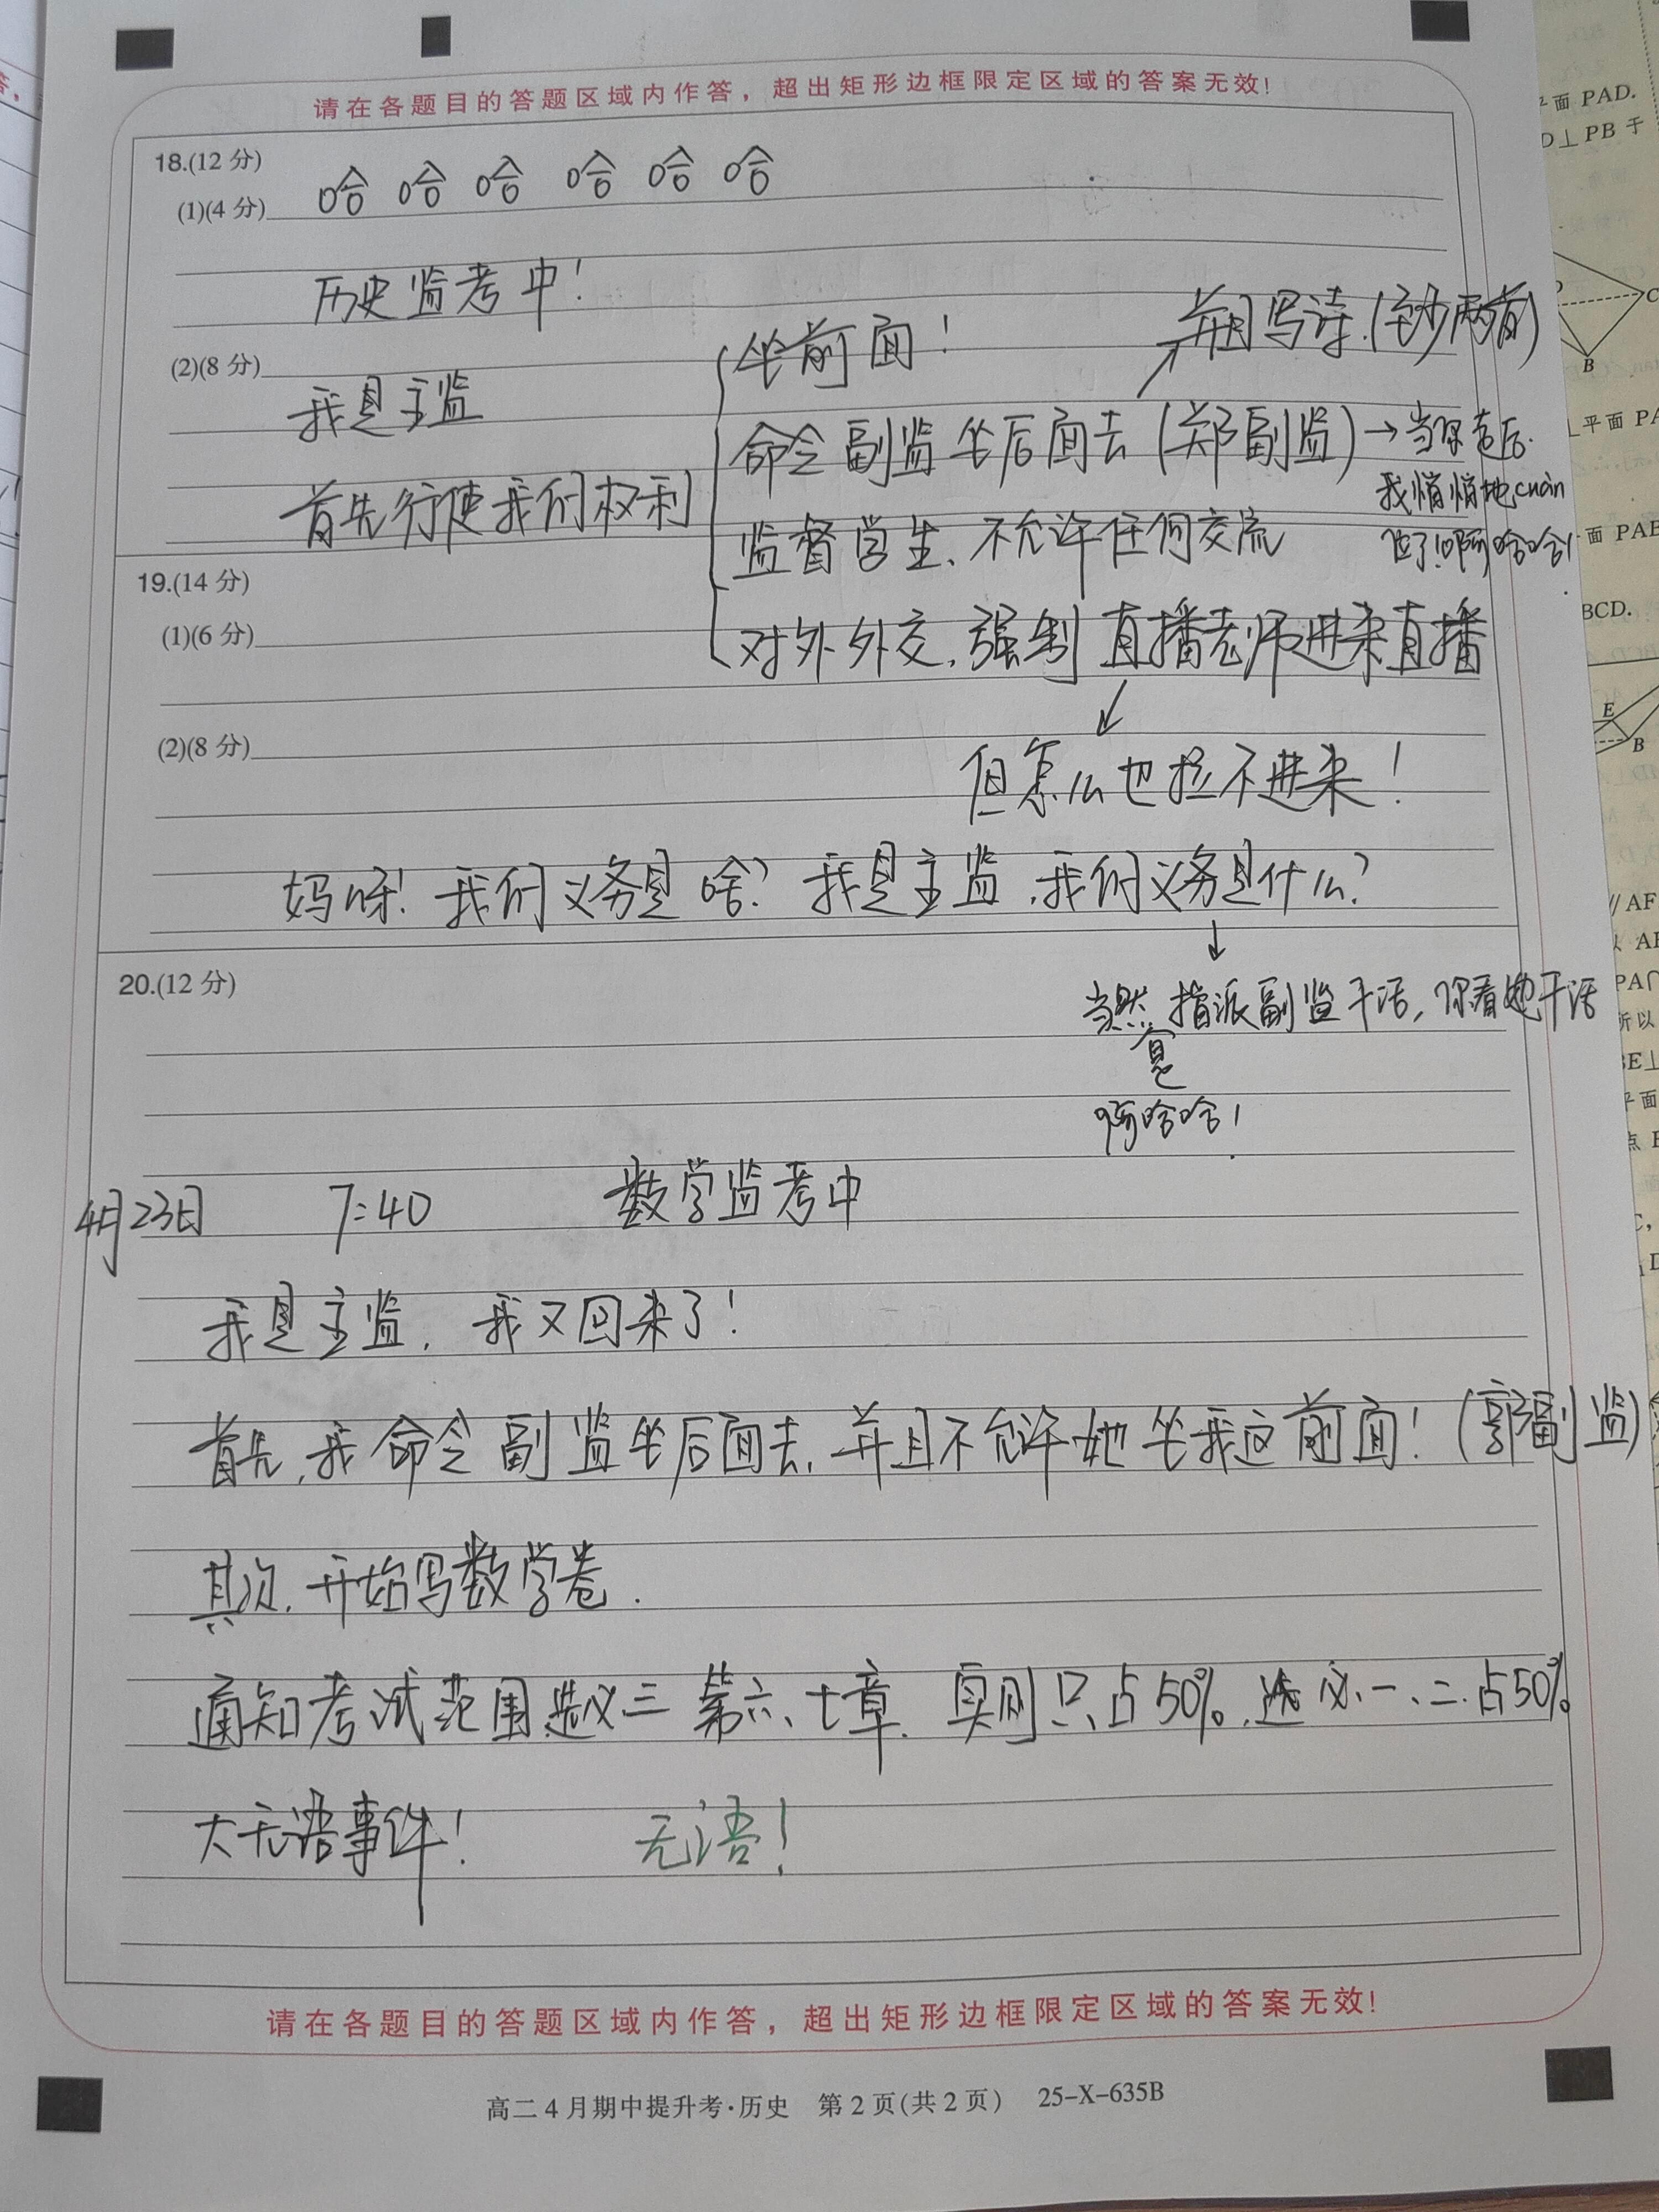 请在各题目的答题区域内作答，超出矩形边框限定区域的答案无效！
18.(12 分)
(1)(4 分) 哈 哈 哈 哈 哈 哈
历史监考中！
(2)(8 分)
我是主监
首先行使我们权利
坐前面！
并且写诗.(至少两首)
命令副监坐后面去(郑副监)→当果走后.
我悄悄地cuàn
位了！啊哈哈！
监督学生、不允许任何交流
对外外交.强制直播老师进来直播
↓
但怎么也拉不进来！
19.(14 分)
(1)(6 分)
(2)(8 分)
妈呀！我们义务是啥？我是主监，我们义务是什么？
↓
当然指派副监干活，你看她干活
啊哈哈！
20.(12 分)
4月23日 7:40 数学监考中
我是主监，我又回来了！
首先，我命令副监坐后面去，并且不允许她坐我这前面！(郭副监)
其次，开始写数学卷.
通知考试范围选必三 第六、七章. 实则只占50%.选必一、二.占50%
大无语事件！ 无语！
请在各题目的答题区域内作答，超出矩形边框限定区域的答案无效！
高二 4 月期中提升考·历史 第 2 页(共 2 页) 25-X-635B
平面 PAD.
D⊥PB 于
C
B
⊥平面 PA
面 PAB
BCD.
E
B
// AF
PA∩
所以
BE⊥
平面
点 E